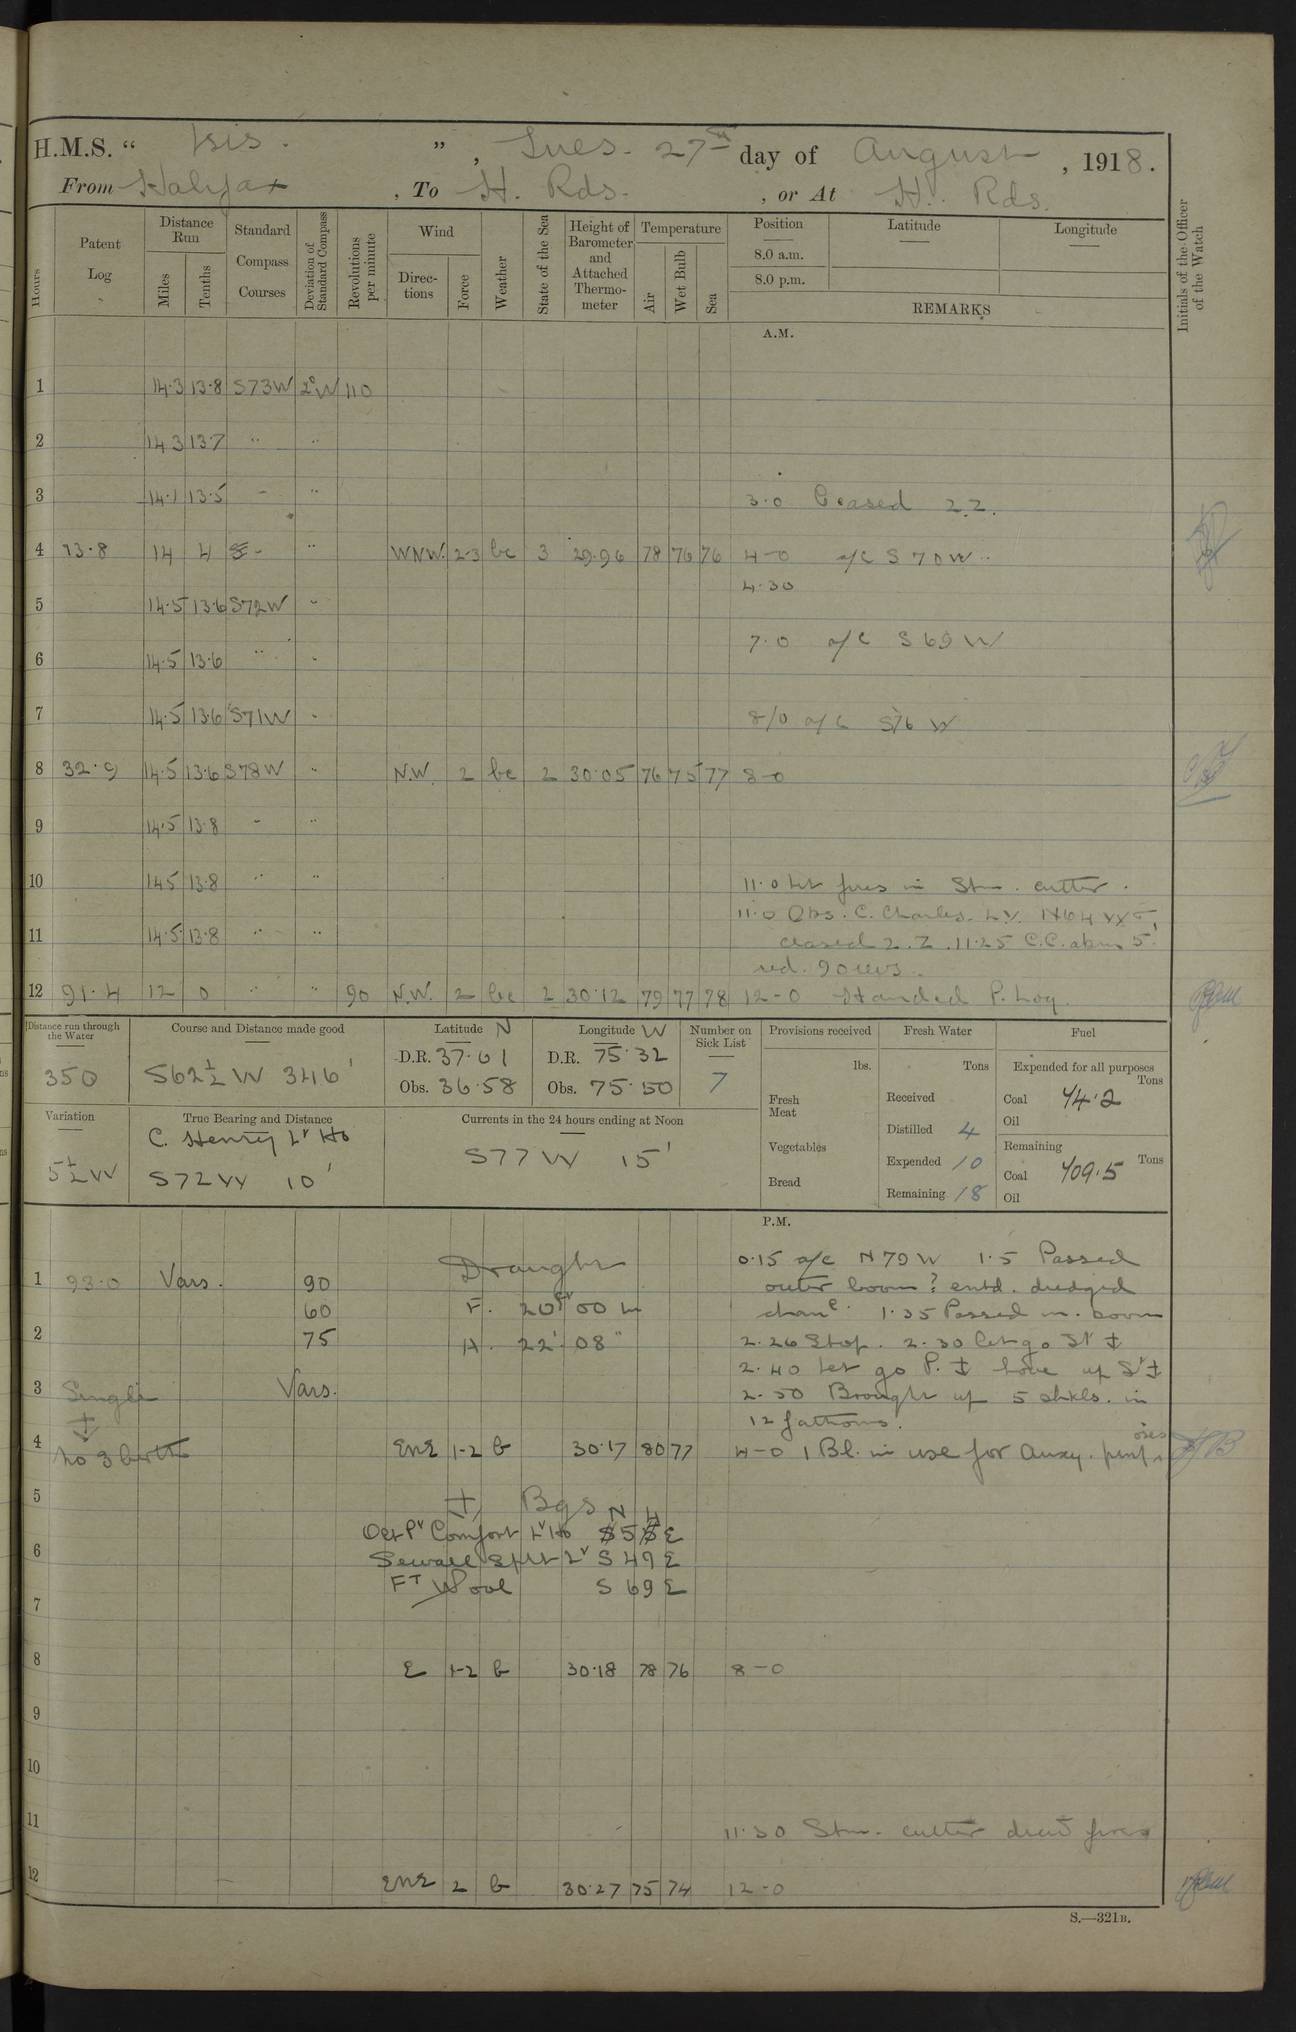 H.M.S. " Isis. ", Tues. 27th day of August, 1918.
From Halifax, To H. Rds., or At H. Rds.
Hours
Patent Log
Distance Run
Miles
Tenths
Standard Compass Courses
Deviation of Standard Compass
Revolutions per minute
Wind
Directions
Force
Weather
State of the Sea
Height of Barometer and Attached Thermometer
Temperature
Air
Wet Bulb
Sea
Position
8.0 a.m.
8.0 p.m.
Latitude
Longitude
REMARKS
Initials of the Officer of the Watch
A.M.
1 14.3 13.8 S73W 2°W 110
2 14 3 13.7 " "
3 14.1 13.5 - " 3.0 Ceased 2.Z.
4 73.8 14 4 - " WNW. 2-3 bc 3 29.96 78 76 76 4-0 a/c S 70 W
4.30
5 14.5 13.6 S72W "
7.0 a/c S 69 W
6 14.5 13.6 " "
7 14.5 13.6 S71W " 8/0 a/c S76 W
8 32.9 14.5 13.6 S78W " N.W. 2 bc 2 30.05 76 75 77 8-0
9 14.5 13.8 - "
10 14.5 13.8 " " 11.0 Lit fires in Stm. cutter.
11.0 Obs. C. Charles. L.V. N64W
11 14.5 13.8 " " ceased 2.Z. 11.25 C.C. abm 5'
red. 90 revs.
12 91.4 12 0 " " 90 N.W. 2 bc 2 30.12 79 77 78 12-0 Handed P. Log.
Distance run through the Water
350
Course and Distance made good
S62½W 346'
Latitude N
D.R. 37.01
Obs. 36.58
Longitude W
D.R. 75.32
Obs. 75.50
Number on Sick List
7
Provisions received
lbs.
Fresh Meat
Vegetables
Bread
Fresh Water
Tons
Received
Distilled 4
Expended 10
Remaining 18
Fuel
Expended for all purposes
Tons
Coal 74.2
Oil
Remaining
Tons
Coal 709.5
Oil
Variation
5½W
True Bearing and Distance
C. Henry Lt Ho
S72W 10'
Currents in the 24 hours ending at Noon
S77W 15'
P.M.
0.15 a/c N79W 1.5 Passed
1 93.0 Vars. 90 Draught outer boom & entd. dredged
60 F. 20ft 00 in chanl. 1.35 Passed in. boom
2 75 A. 22' 08" 2.26 Stop. 2.30 Let go St ⚓
2.40 Let go P. ⚓ hove up St ⚓
3 Single Vars. 2.50 Brought up 5 shkls. in
⚓ 12 fathoms.
4 No 3 berth ENE 1-2 b 30.17 80 77 4-0 1 Bl. in use for Auxy. purposes
5 ⚓ Bgs
Old Pt Comfort Lt Ho N 5 E
6 Sewall Spit Lt S 49 E
Ft Wool S 69 E
7
8 E 1-2 b 30.18 78 76 8-0
9
10
11 11.30 Stm. cutter drew fires
12 ENE 2 b 30.27 75 74 12-0
S.—321B.